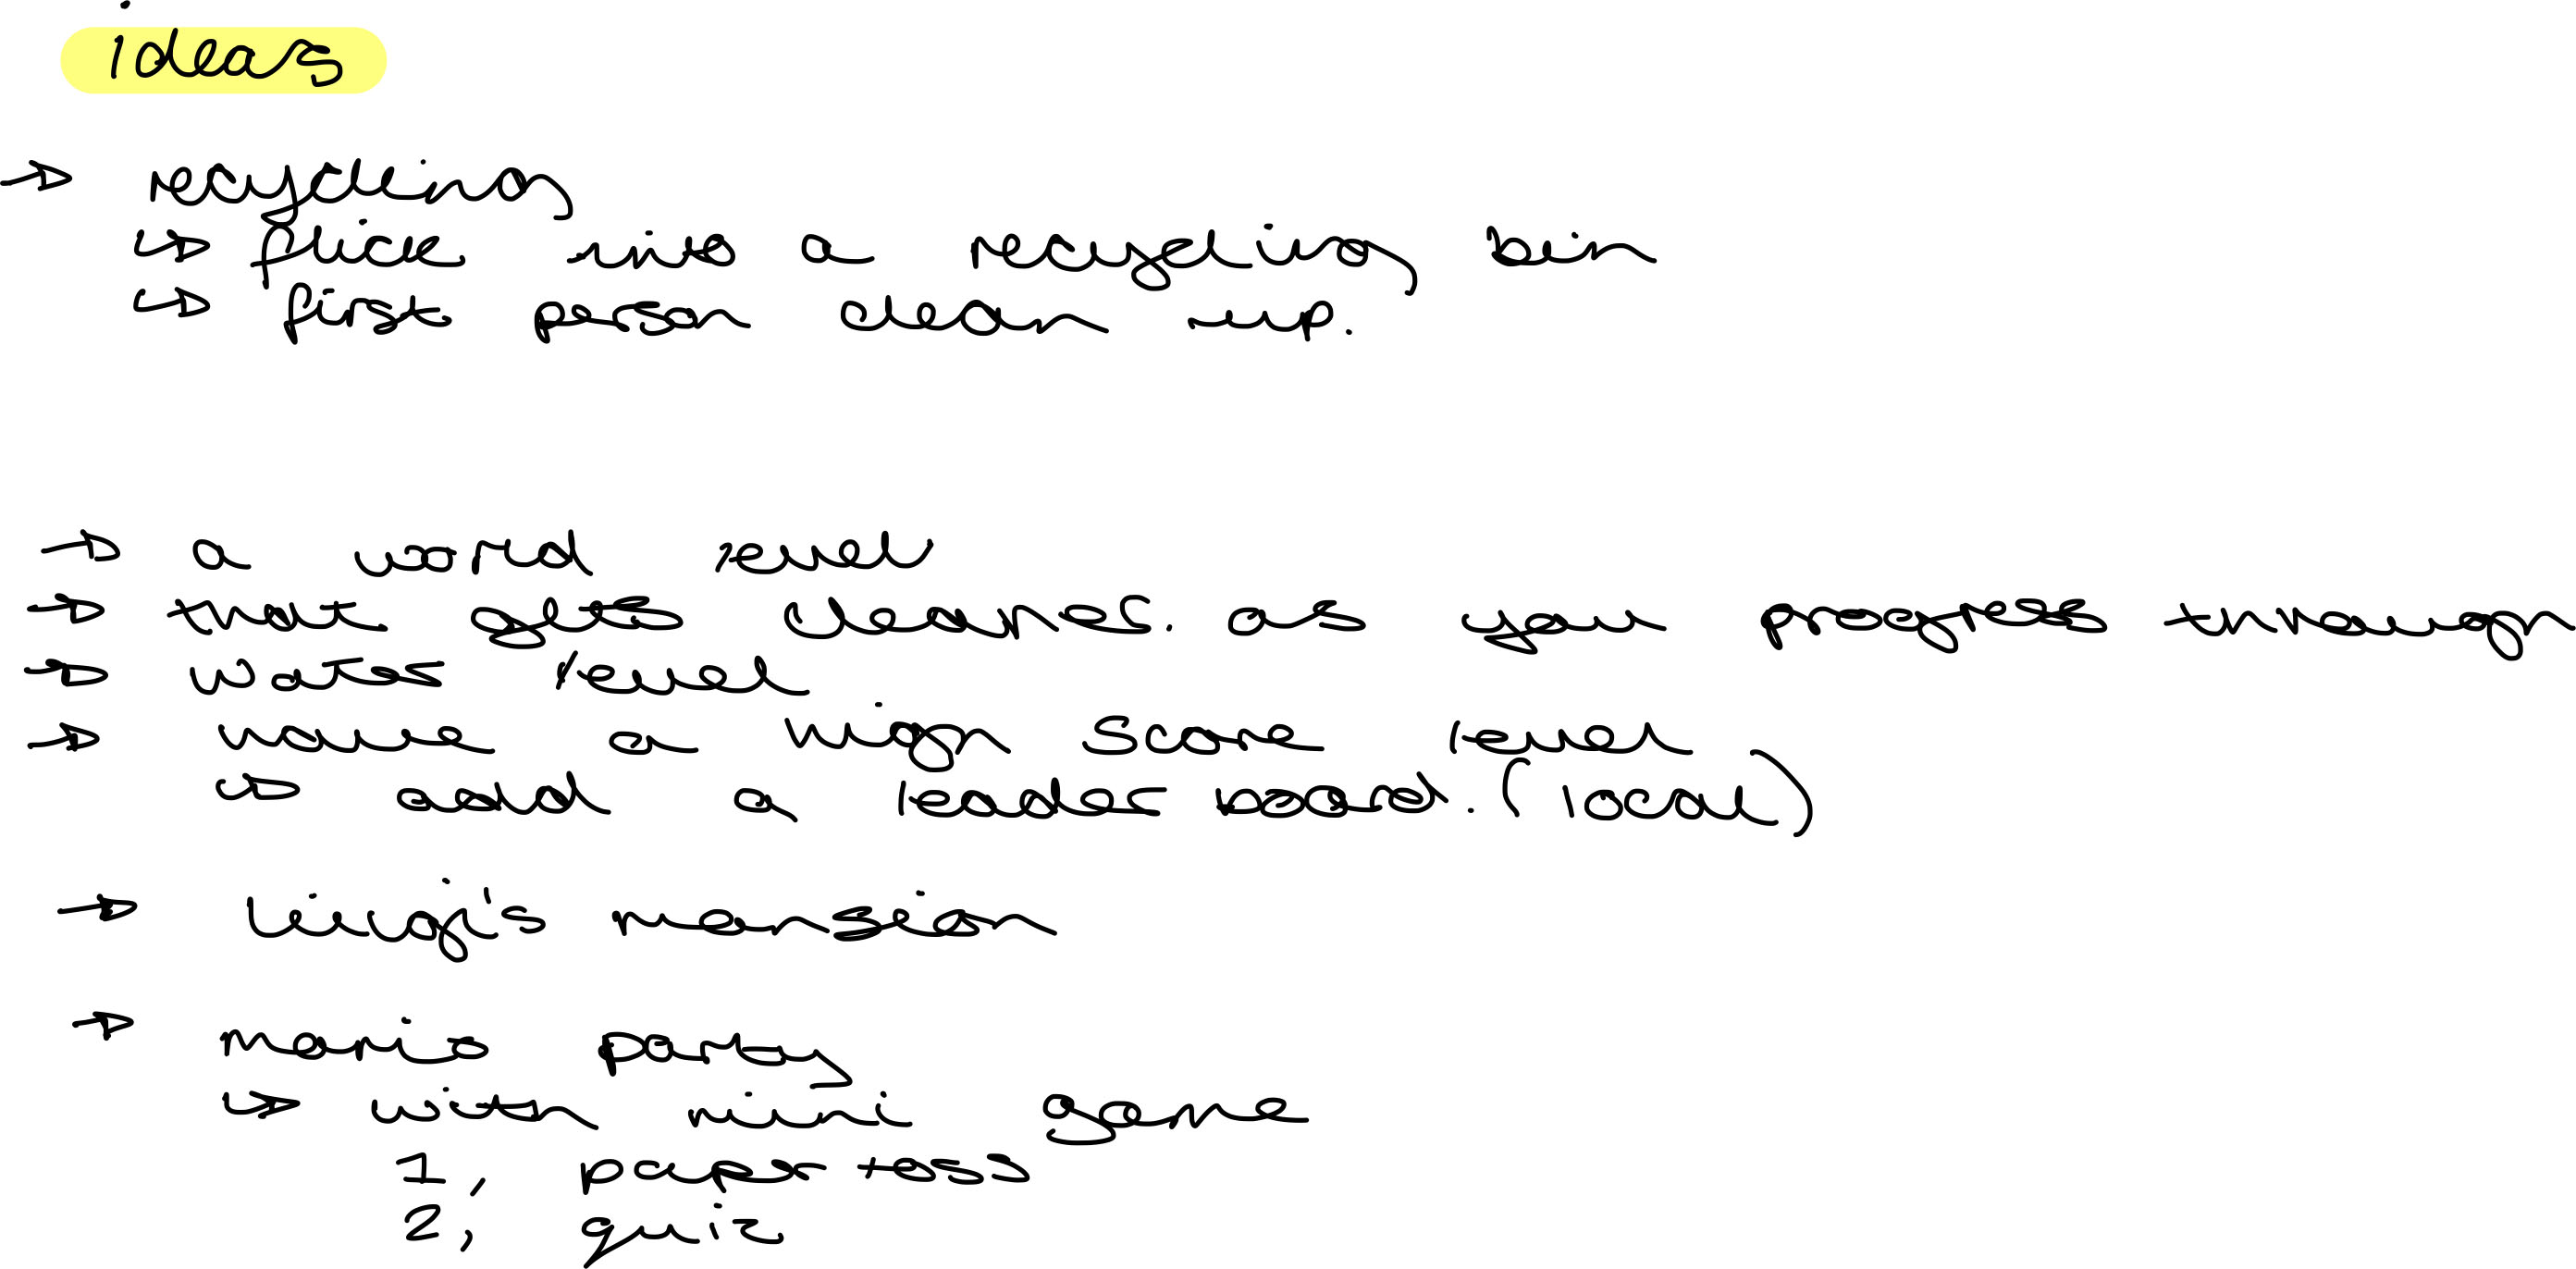 ideas
→ recycling
↳ flick into a recycling bin
↳ first person clean up.
→ a world level
→ that gets cleaner. as you progress through
→ water level
→ have a high score level
↳ add a leader board. (local)
→ luigi's mansion
→ mario party
↳ with mini game
1, paper toss
2, quiz